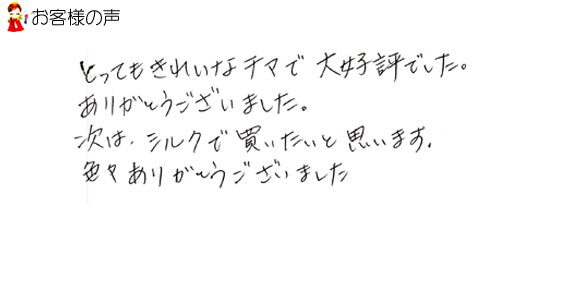 お客様の声
とってもきれいなチマで大好評でした。
ありがとうございました。
次は、シルクで買いたいと思います。
色々ありがとうございました